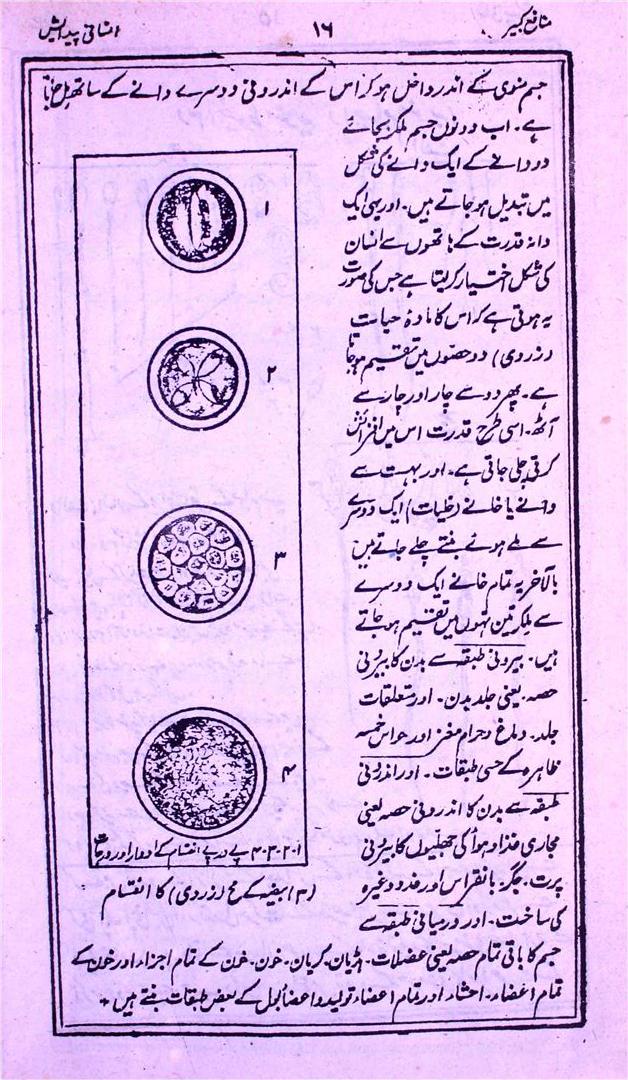 منافع کبیر
۱۶
انسانی پیدایش
جسم منوی کے اندر داخل ہو کر اس کے اندرونی دوسرے دانے کے ساتھ مل جاتا
ہے۔ اب دونوں جسم ملکر بجائے
دو دانے کے ایک دانے کی شکل
میں تبدیل ہو جاتے ہیں۔ اور یہی ایک
دانہ قدرت کے ہاتھوں سے انسان
کی شکل اختیار کر لیتا ہے جس کی صورت
یہ ہوتی ہے کہ اس کا مادۂ حیات
(زردی) دو حصّوں میں تقسیم ہو جاتا
ہے۔ پھر دو سے چار اور چار سے
آٹھ۔ اسی طرح قدرت اس میں افزائش
کرتی چلی جاتی ہے۔ اور بہت سے
دانے یا خانے (خلیات) ایک دوسرے
سے ملے ہوئے بنتے چلے جاتے ہیں
بالآخر یہ تمام خانے ایک دوسرے
سے ملکر تین تہوں میں تقسیم ہو جاتے
ہیں۔ بیرونی طبقہ سے بدن کا بیرونی
حصہ۔ یعنی جلد بدن۔ اور متعلقات
جلد۔ دماغ و حرام مغز اور حواس خمسہ
ظاہرہ کے حسی طبقات۔ اور اندرونی
طبقہ سے بدن کا اندرونی حصہ یعنی
مجاری غذا و ہوا کی جھلّیوں کا بیرونی
پرت۔ جگر۔ بانقراس اور غدد وغیرہ
کی ساخت۔ اور درمیانی طبقہ سے
جسم کا باقی تمام حصہ یعنی عضلات۔ ہڈیاں۔ کریاں۔ خون۔ خون کے تمام اجزاء اور خون کے
تمام اعضاء۔ احشاء اور تمام اعضاء تولید و اعضا بول کے بعض طبقات بنتے ہیں +
۱
۲
۳
۴
۱-۲-۳-۴ پے در پے انقسام کے ادوار اور درجات
(۳) بیضہ کے مح (زردی) کا انقسام